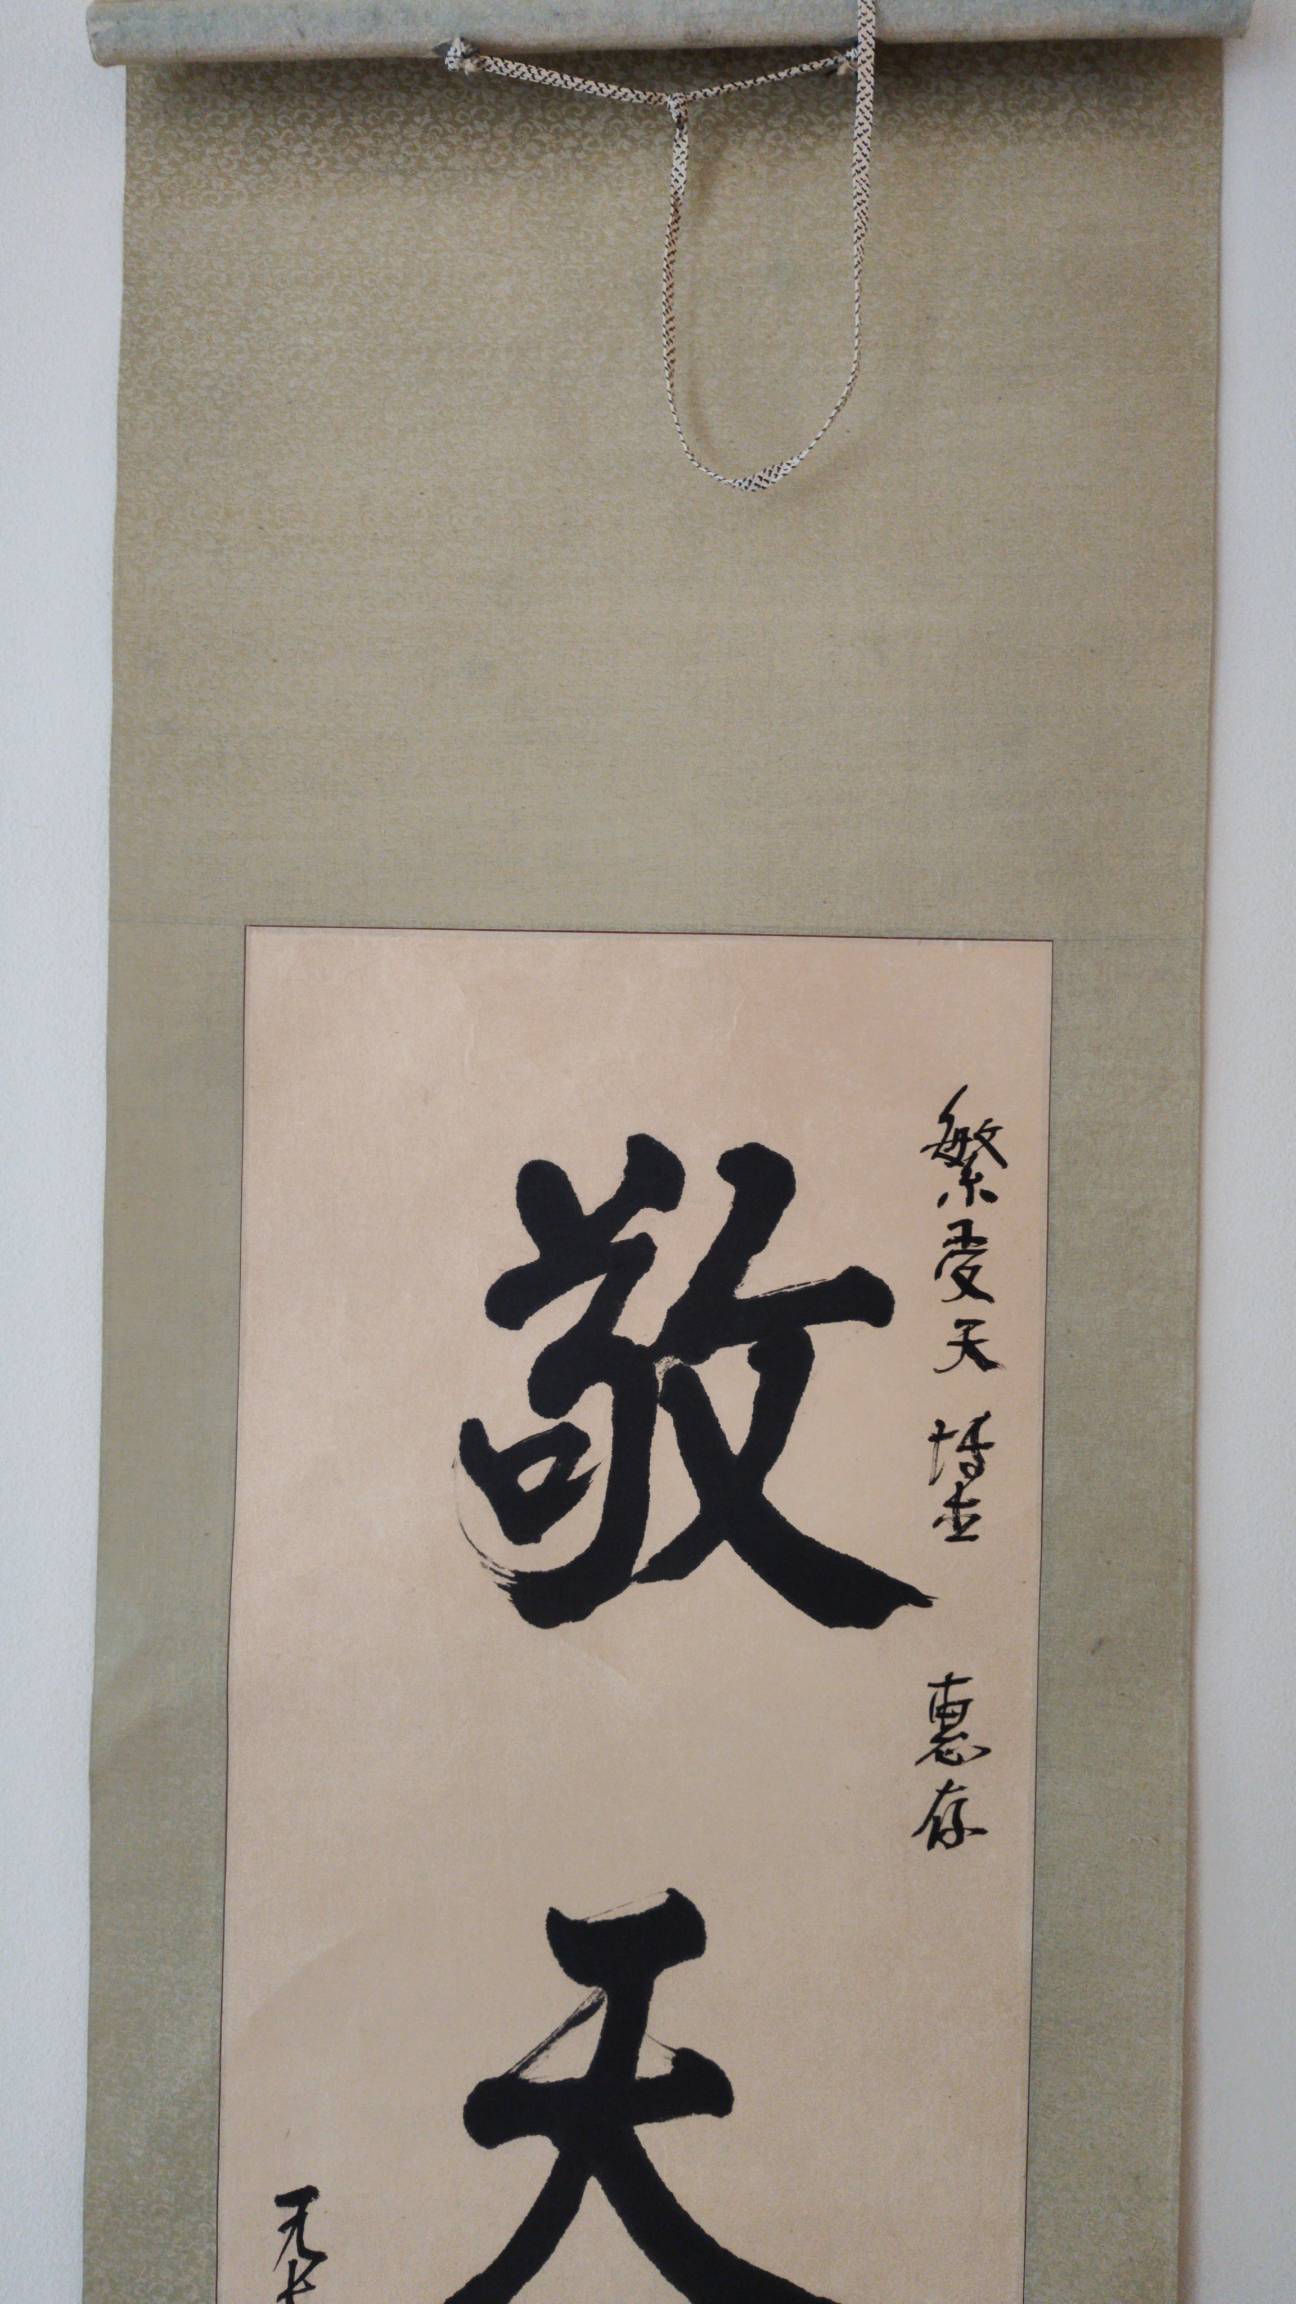 繁受天 博士 惠存
敬天